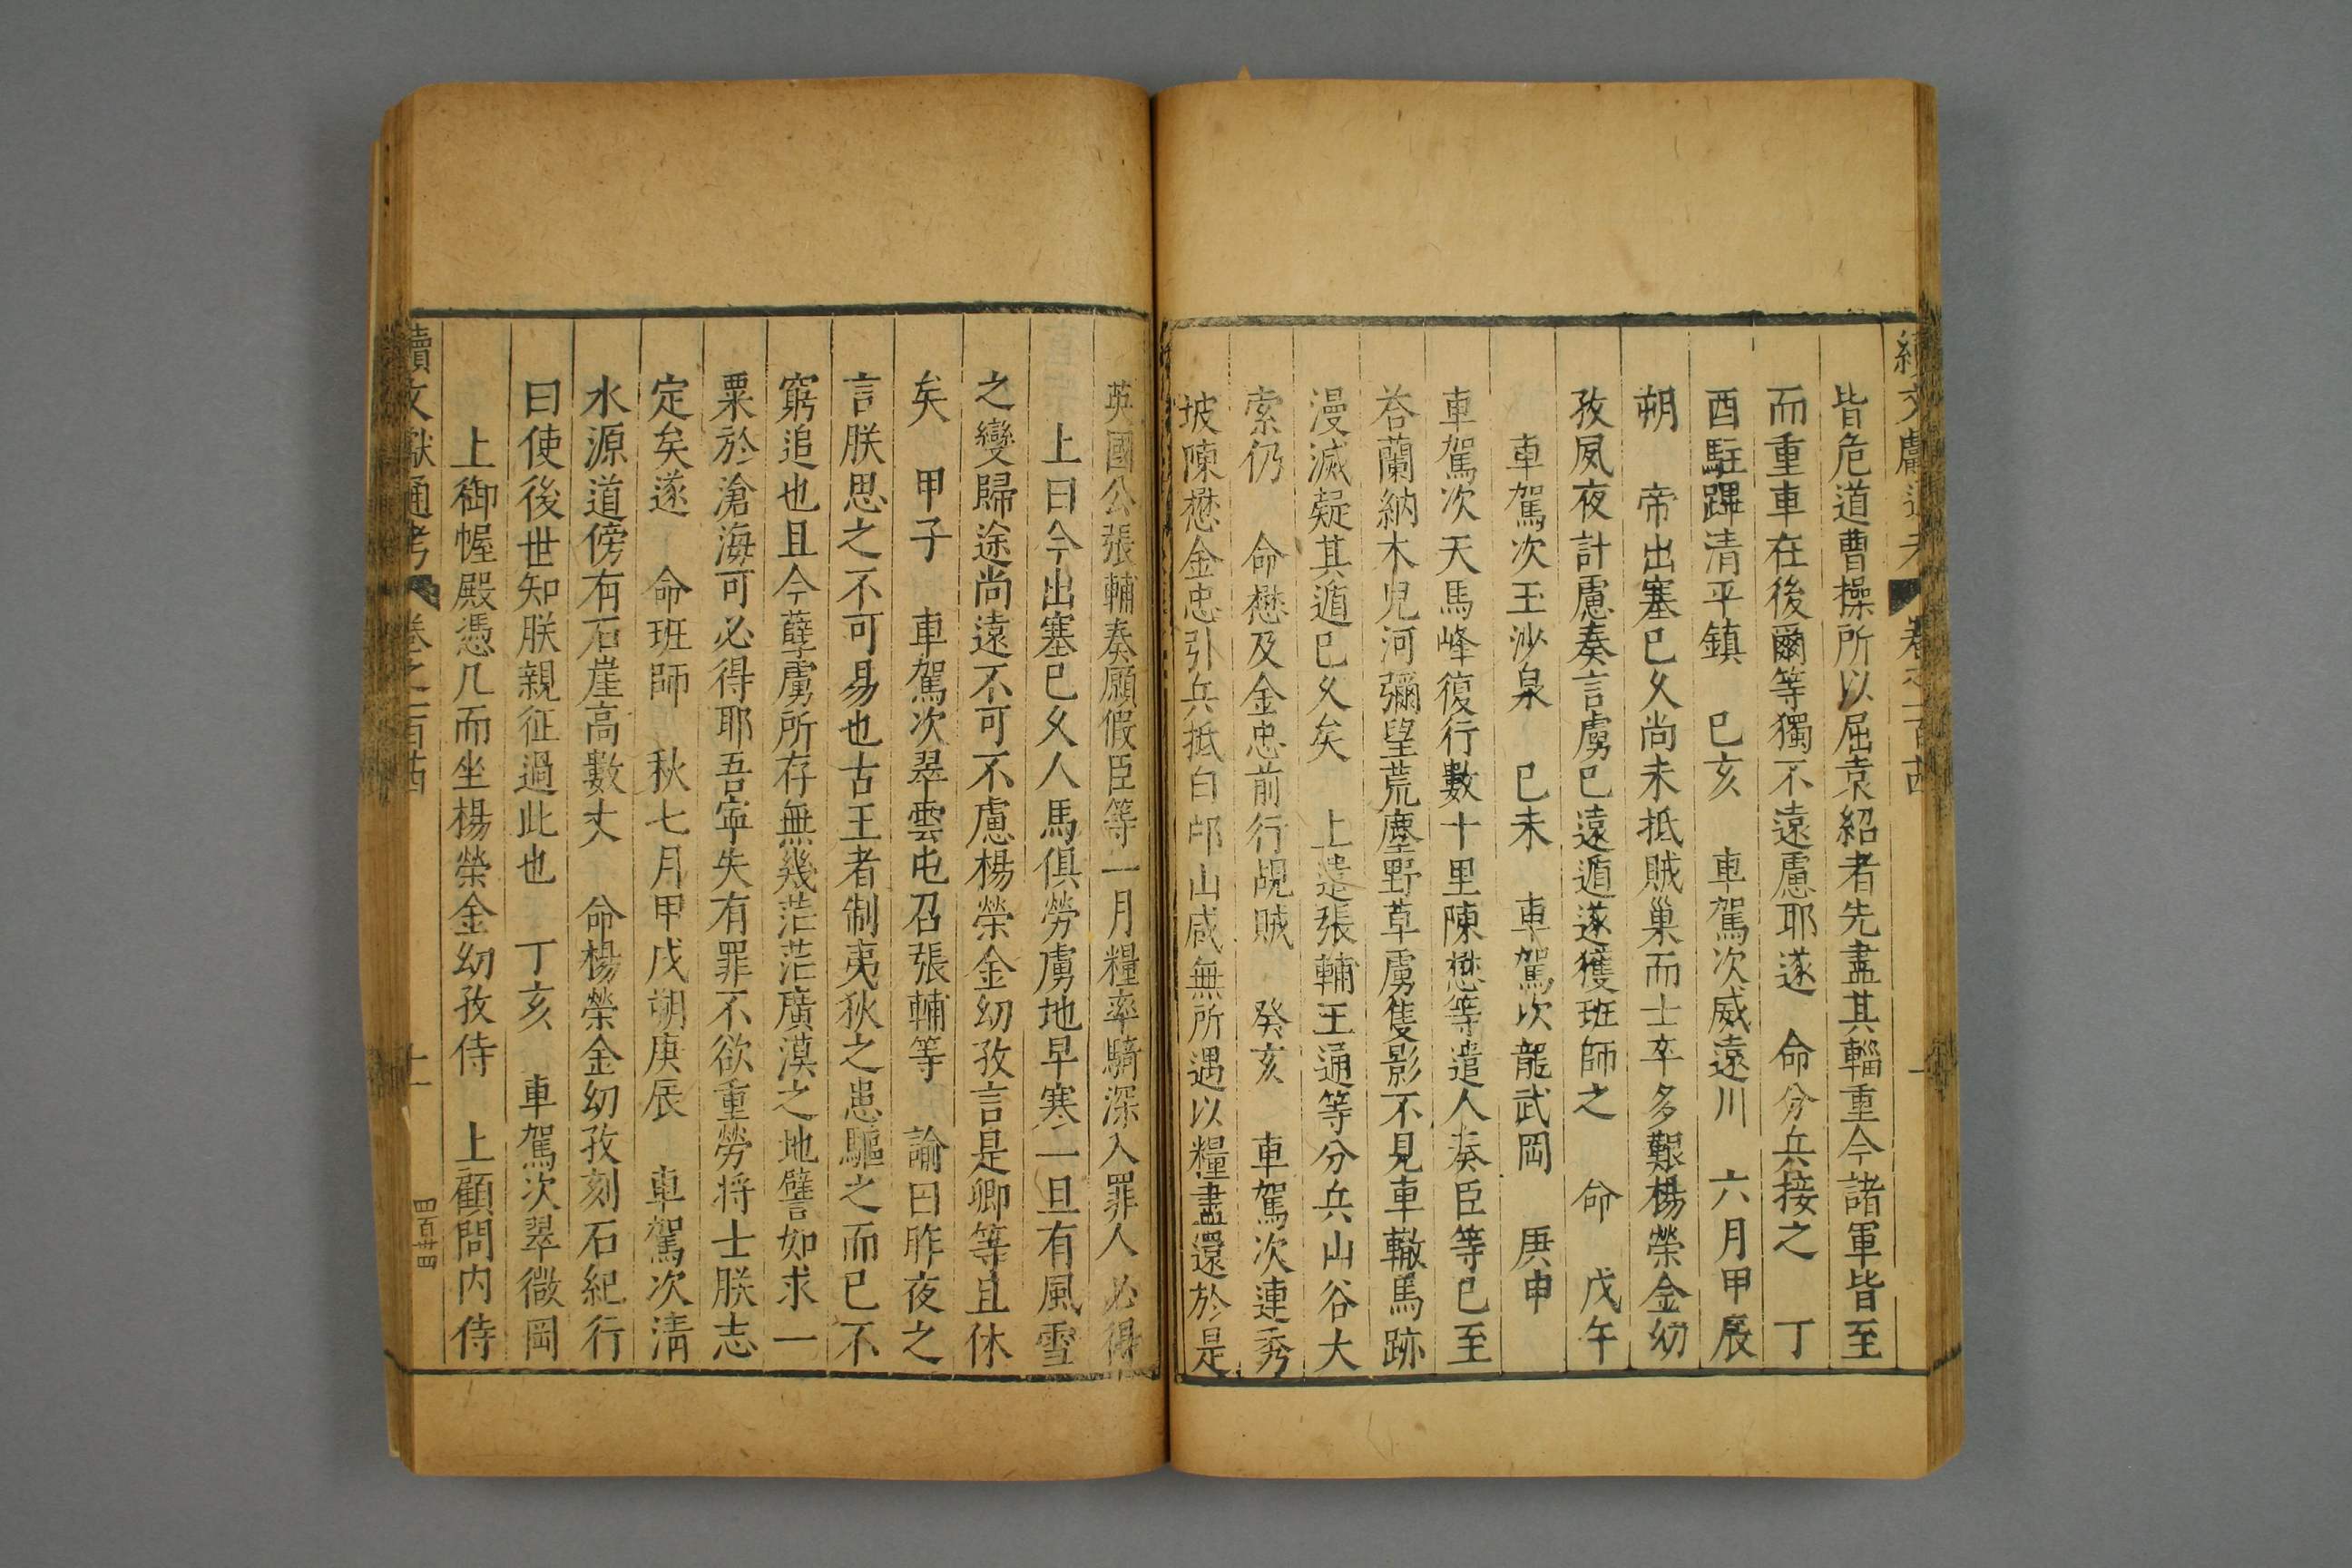 皆危道曹操所以屈袁紹者先盡其輜重今諸軍皆至
而重車在後爾等獨不遠慮耶遂　命分兵接之　丁
酉駐蹕清平鎮　己亥　車駕次威遠川　六月甲辰
朔　帝出塞已久尚未抵賊巢而士卒多艱楊榮金幼
孜夙夜計慮奏言虜已遠遁遂獲班師之　命　戊午
車駕次玉沙泉　己未　車駕次龍武岡　庚申
車駕次天馬峰復行數十里陳懋等遣人奏臣等已至
荅蘭納木兒河彌望荒塵野草虜隻影不見車轍馬跡
漫滅疑其遁已久矣　上遣張輔王通等分兵山谷大
索仍　命懋及金忠前行覘賊　癸亥　車駕次連秀
坡陳懋金忠引兵抵白邙山咸無所遇以糧盡還於是
英國公張輔奏願假臣等一月糧率騎深入罪人必得
上曰今出塞已久人馬俱勞虜地早寒一旦有風雪
之變歸途尚遠不可不慮楊榮金幼孜言是卿等且休
矣　甲子　車駕次翠雲屯召張輔等　諭曰昨夜之
言朕思之不可易也古王者制夷狄之患驅之而已不
窮追也且今孽虜所存無幾茫茫廣漠之地譬如求一
粟於滄海可必得耶吾寧失有罪不欲重勞将士朕志
定矣遂　命班師　秋七月甲戌朔庚辰　車駕次清
水源道傍有石崖高數丈　命楊榮金幼孜刻石紀行
曰使後世知朕親征過此也　丁亥　車駕次翠微岡
上御幄殿憑几而坐楊榮金幼孜侍　上顧問内侍
續文獻通考　卷之　十一　四百廿四